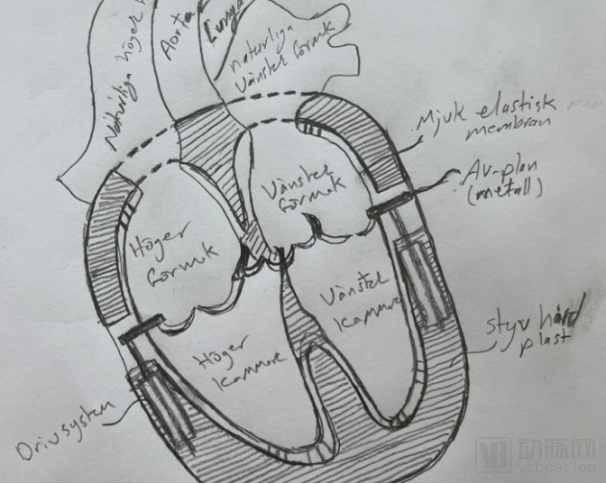 Naturliga höger
Aorta
Lunga
Naturliga
Vänster förmak
Mjuk elastisk
membran
AV-plan
(metall)
Vänster
förmak
Höger
förmak
Vänster
kammare
Höger
kammare
styv hård
plast
Drivsystem
VB 动脉网
vcbeat.top